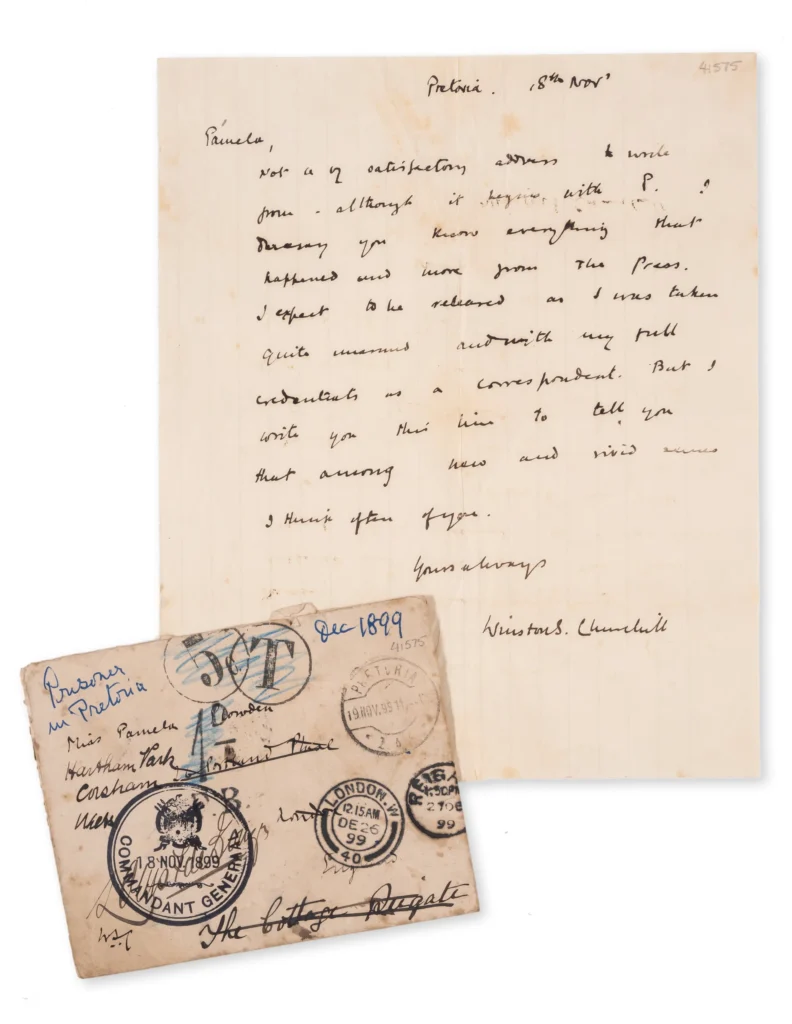 41575
Pretoria. 18th Nov'
Pamela,
Not a vy satisfactory address to write
from - although it begins with P. I
Daresay you know everything that
happened and more from the Press.
I expect to be released as I was taken
quite unarmed and with my full
credentials as a correspondent. But I
write you this line to tell you
that among new and vivid scenes
I think often of you.
Yours always
Winston S. Churchill
Dec 1899
41575
5c T
Prisoner
in Pretoria
PRETORIA
19 NOV. 99
Miss Pamela Plowden
Hartham Park
Portland Place
Corsham
Wilts
London
LONDON. W
12.15 AM
DE 26
99
40
REIGA
1.30PM
27 DE
99
COMMANDANT GENERAAL
18 NOV 1899
England
WSC
The Cottage Reigate